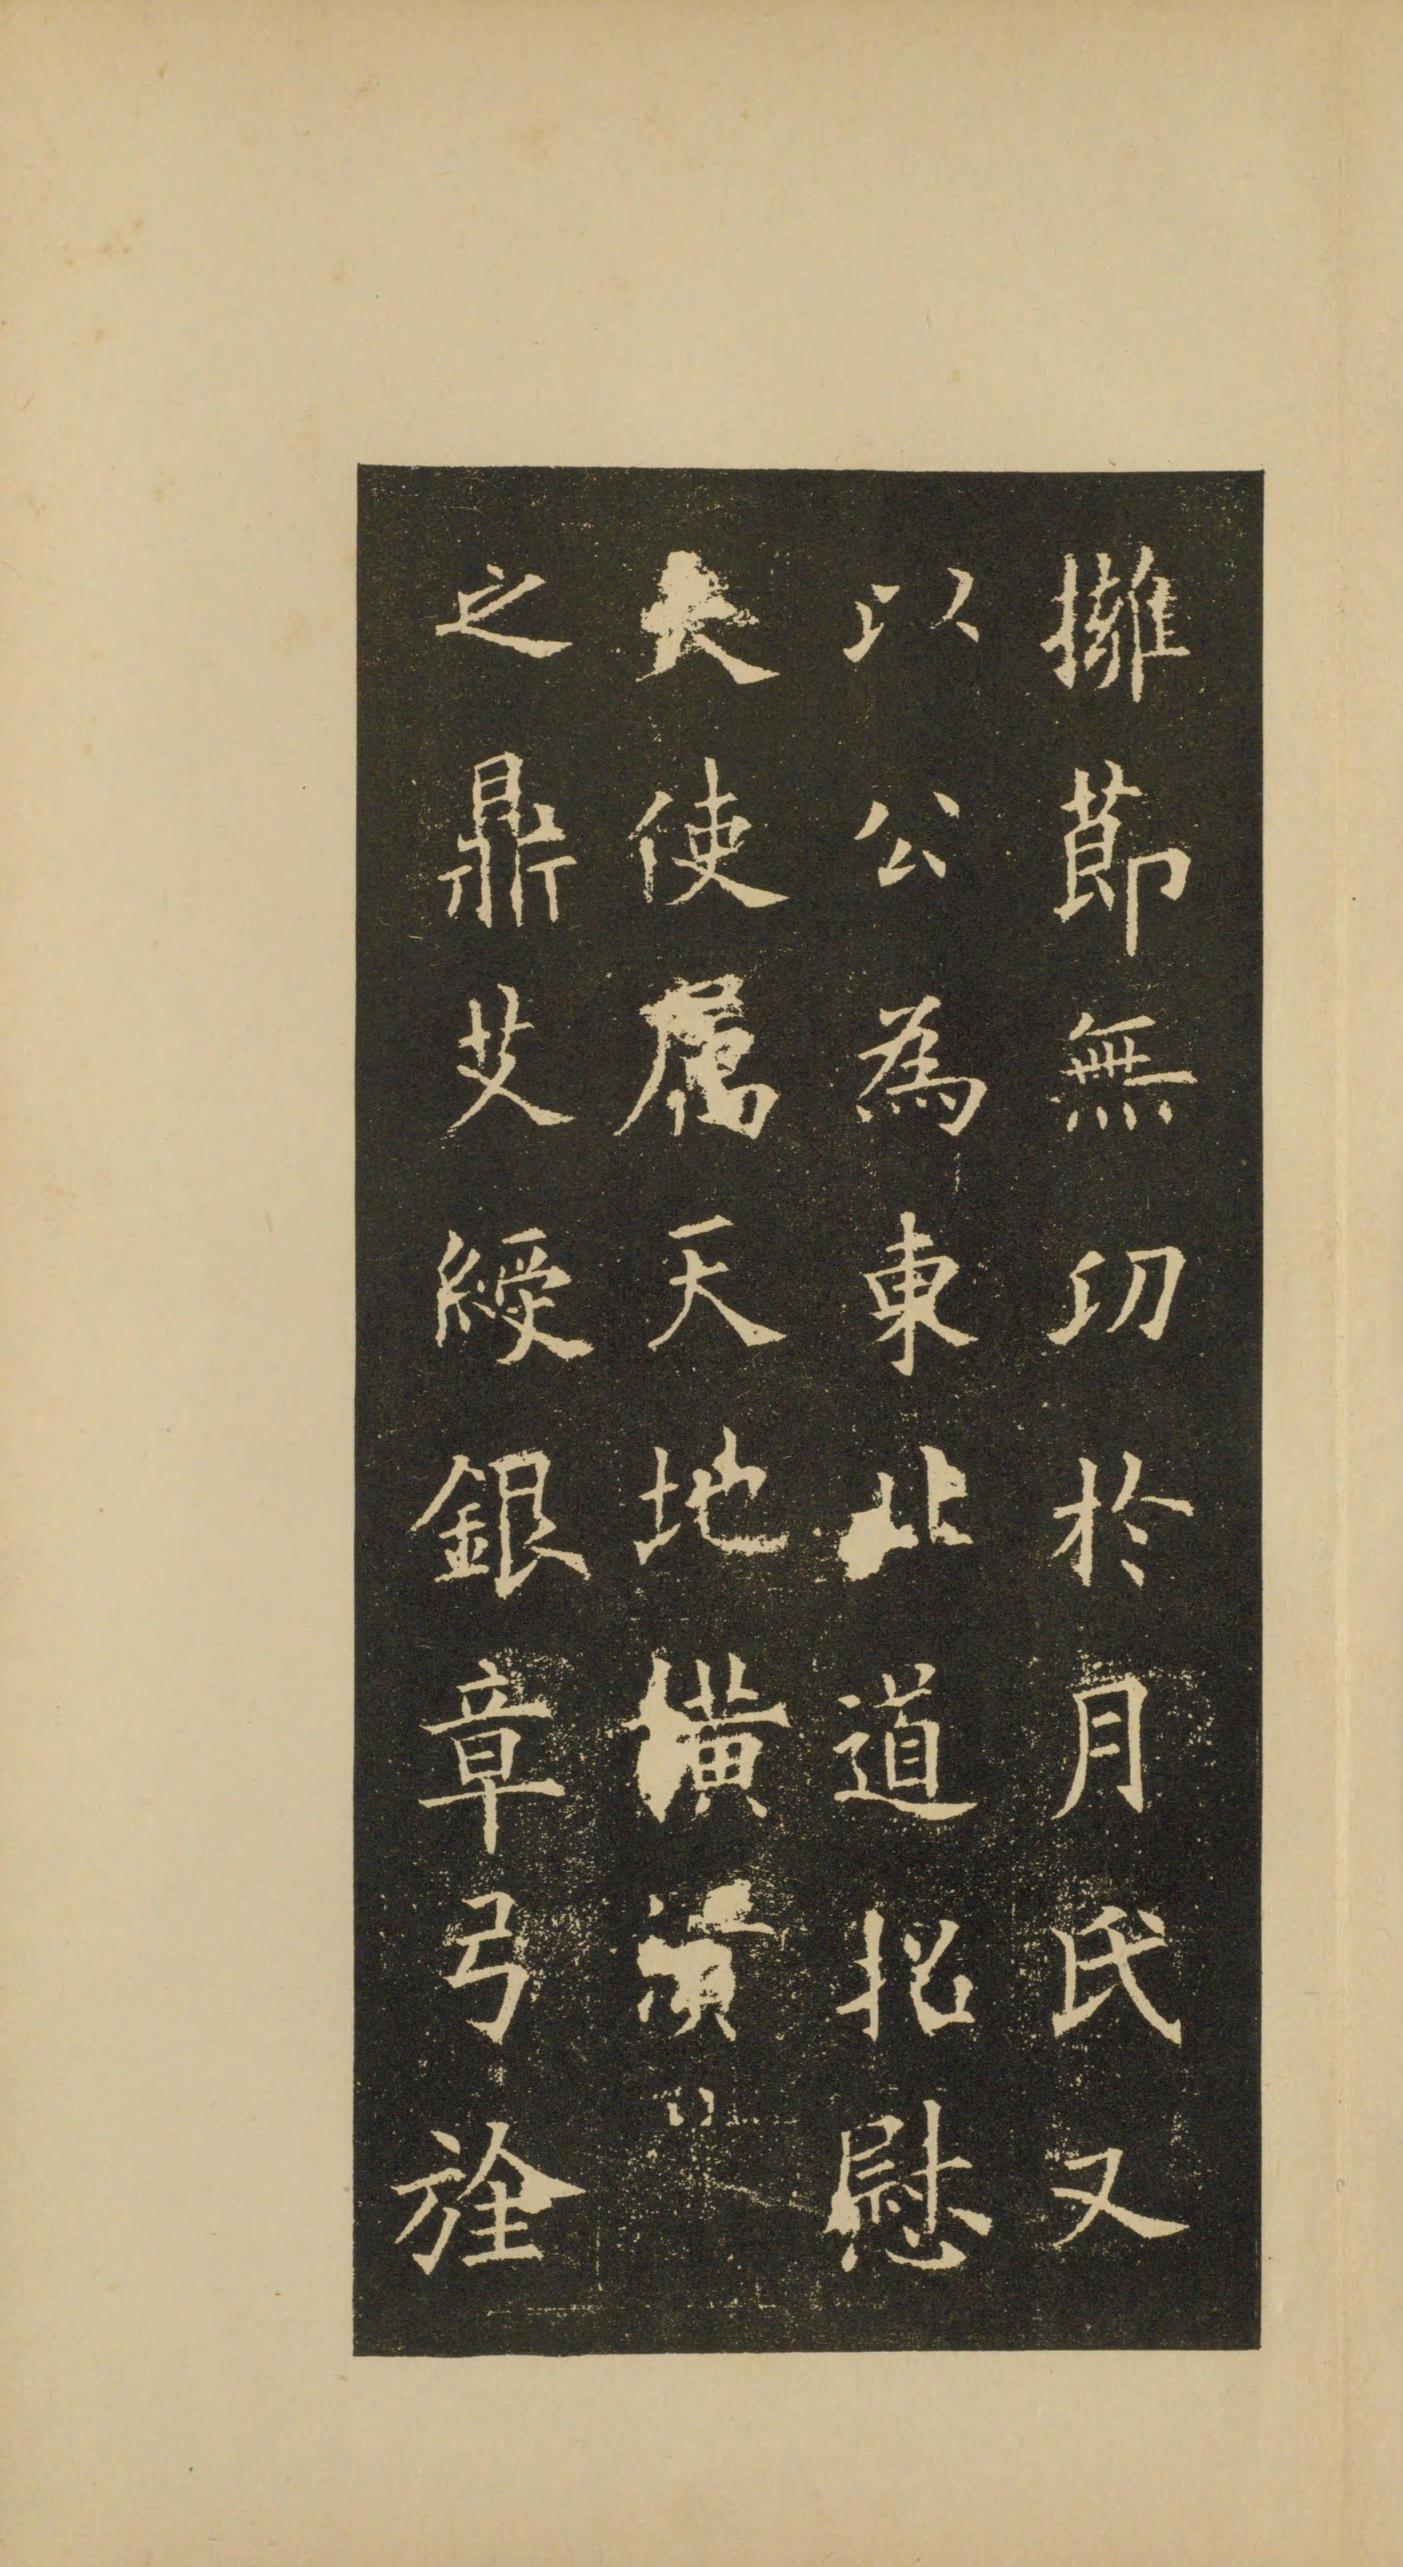 擁節無功於月氏又
以公為東北道招慰
大使属天地橫潰
之鼎艾綬銀章弓旌